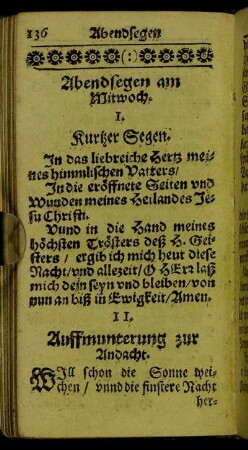 136 Abendsegen
Abendsegen am
Mitwoch.
I.
Kurtzer Segen.
In das liebreiche Hertz mei-
nes himmlischen Vatters/
In die eröffnete Seiten vnd
Wunden meines Heilandes Je-
su Christi.
Vund in die Hand meines
höchsten Trösters deß H. Gei-
sters / ergib ich mich heut diese
Nacht/vnd allezeit/ O HErz laß
mich dein seyn vnd bleiben/von
nun an biß in Ewigkeit/Amen.
II.
Auffmunterung zur
Andacht.
WIll schon die Sonne wei-
chen/ vnnd die finstere Nacht
her-